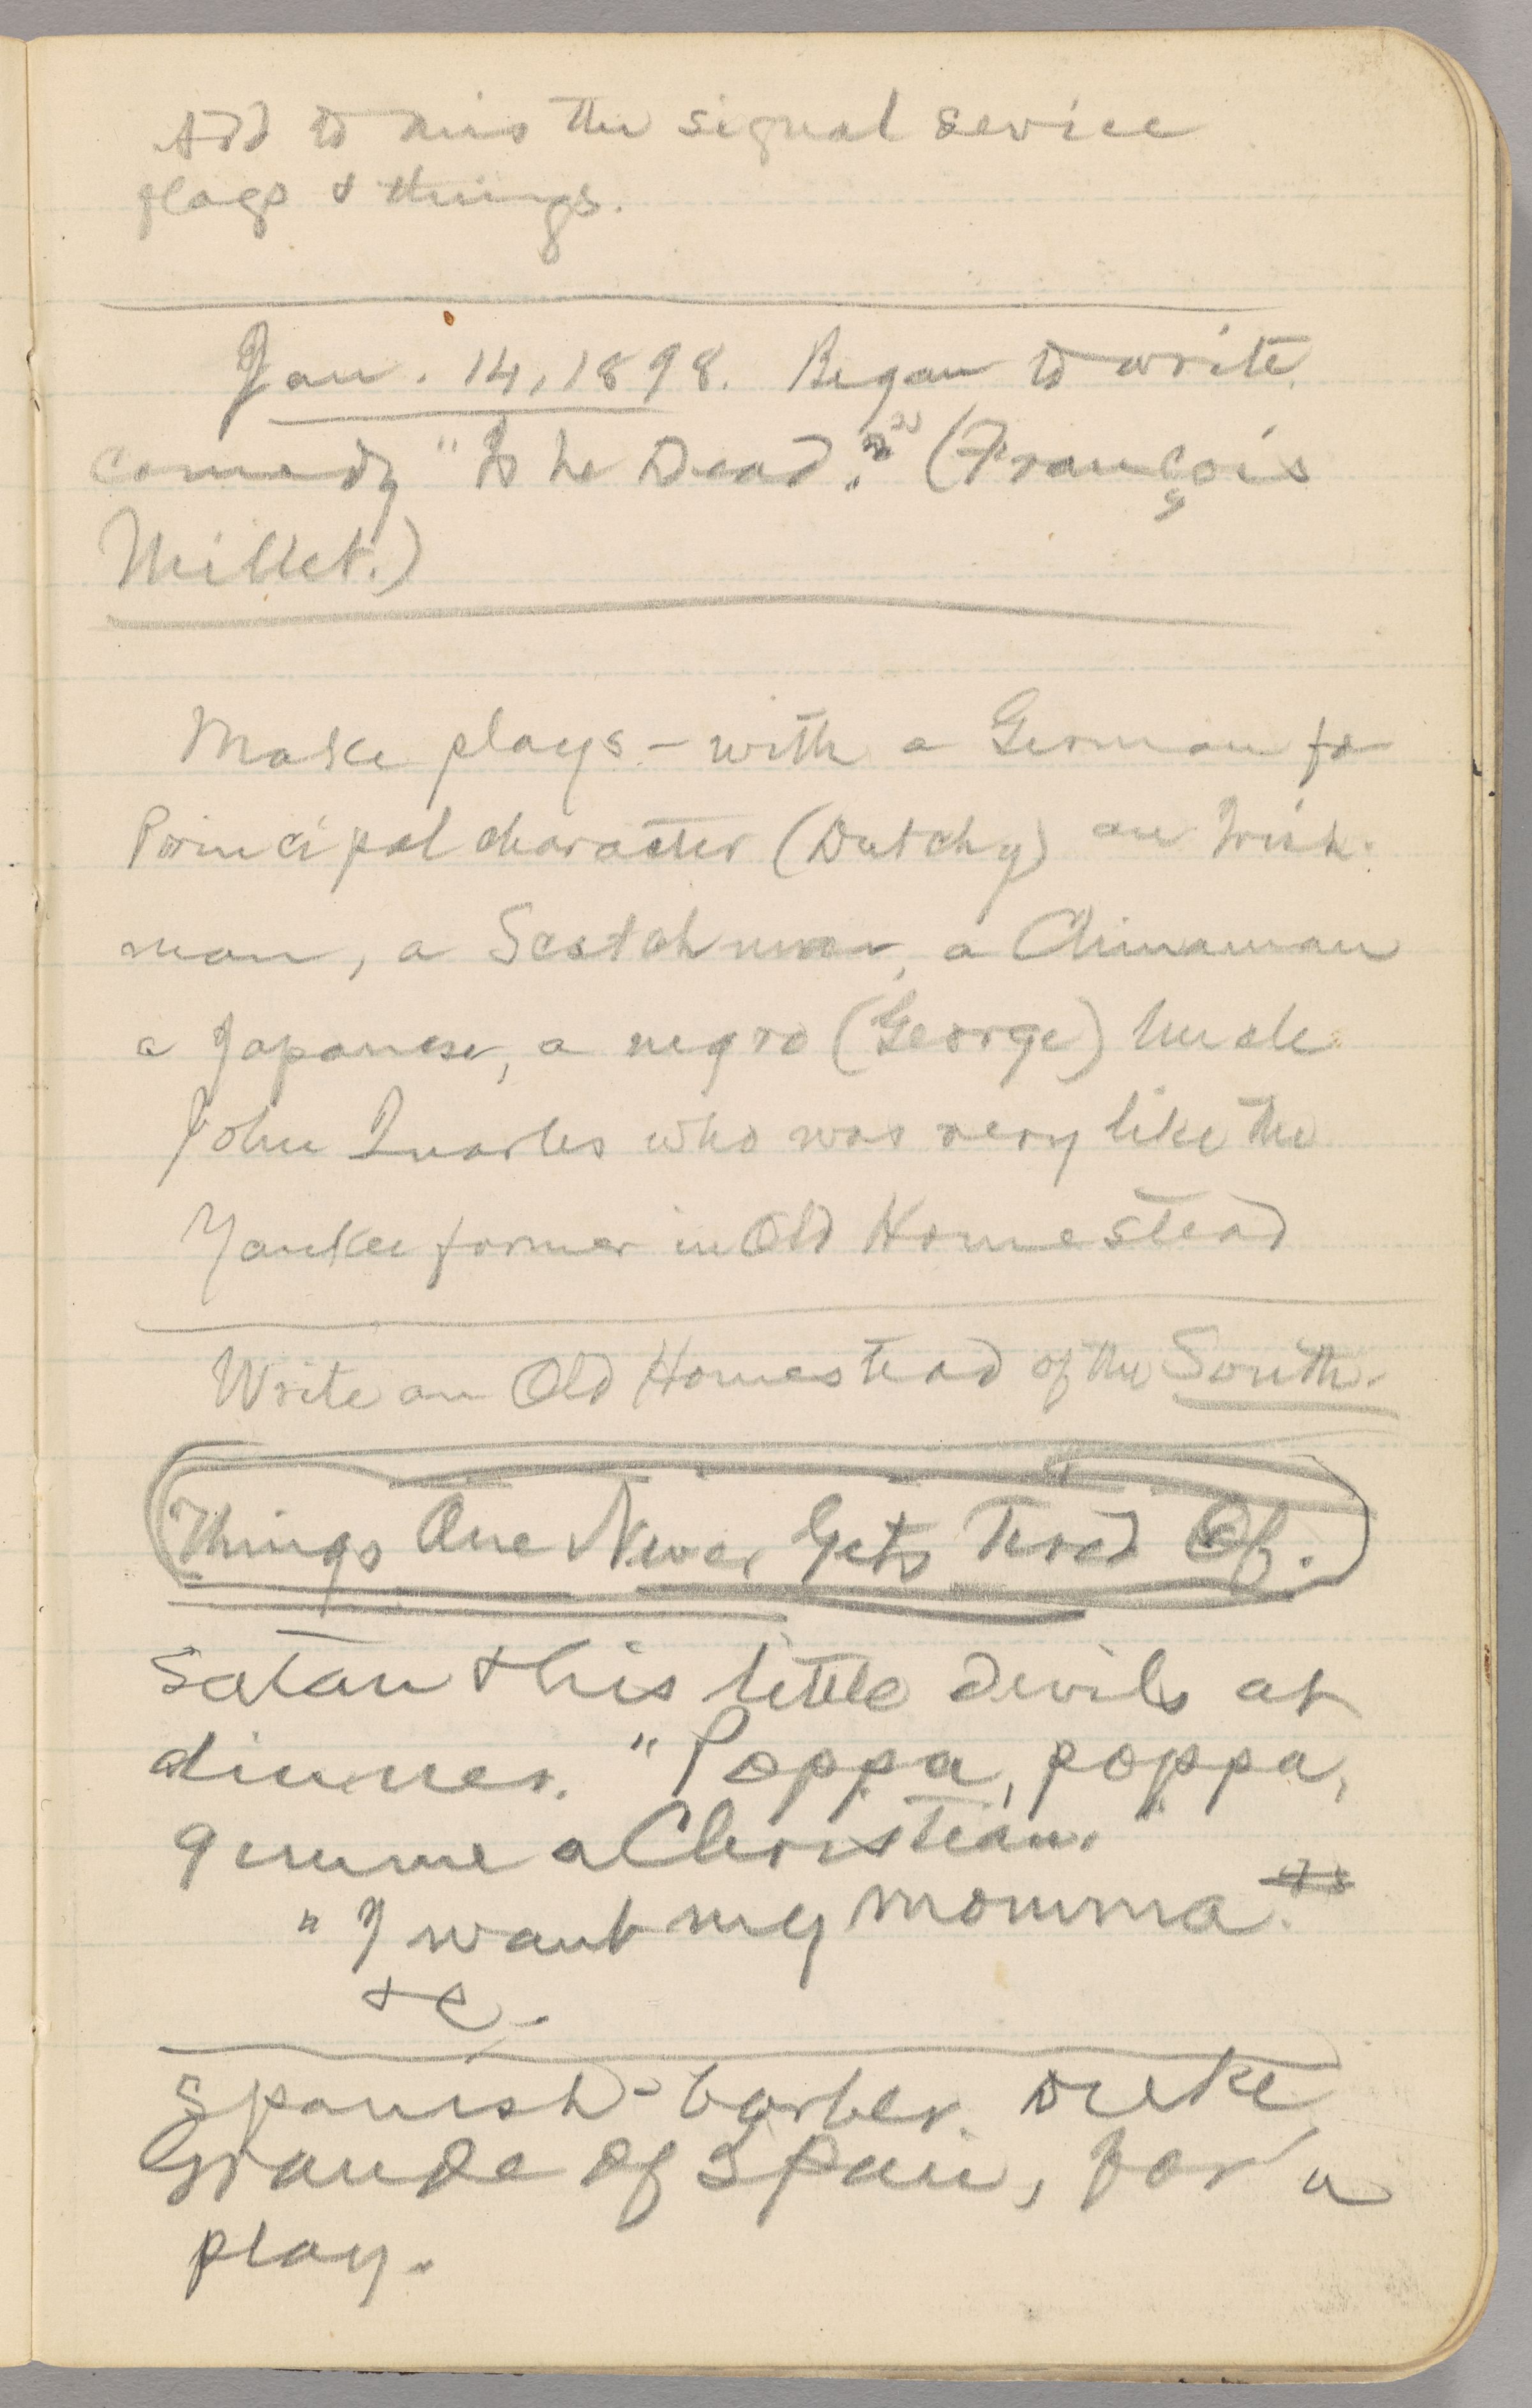 Add to this the signal sevice
flags & things.
Jan. 14, 1898. Began to write
comedy "Is he Dead?" (François
Millet.)
Make plays – with a German fo
Principal character (Dutchy) an Irish-
man, a Scotchman, a Chinaman
a Japanese, a negro (George) Uncle
John Quarles who was very like the
Yankee farmer in Old Homestead
Write an Old Homestead of the South.
Things One Never Gets Tired Of.
Satan & his little devils at
dinner. "Poppa, poppa,
gimme a Christian."
"I want my momma."
&c.
Spanish barber. Duke
Grande of Spain, for a
play.